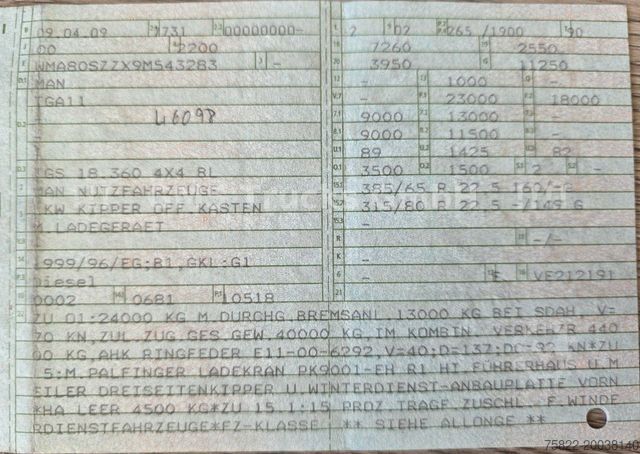 09.04.09 1731 00000000-
00 2200
WMA80SZZX9M543283 -
MAN
TGA11
46098
TGS 18.360 4X4 BL
MAN NUTZFAHRZEUGE
LKW KIPPER OFF.KASTEN
M.LADEGERAET
1999/96/EG;B1,GKL:G1
Diesel
0002 0681 10518
2 02 265 /1900 90
7260 2550
3950 11250
- 1000 -
- 23000 18000
9000 13000 -
9000 11500 -
89 1425 82
3500 1500 2 -
385/65 R 22,5 160/-
315/80 R 22,5 -/149 G
-
- -/-
-
- E VE212191
-
ZU O1:24000 KG M.DURCHG.BREMSANL.13000 KG BEI SDAH. V=
70 KN,ZUL.ZUG.GES.GEW.40000 KG,IM KOMBIN. VERKEHR 440
00 KG,AHK RINGFEDER E11-00-6292,V=40;D=137;DC=92 KN*ZU
5:M.PALFINGER LADEKRAN PK9001-EH R1 HI.FÜHRERHAUS U.M
EILER DREISEITENKIPPER U.WINTERDIENST-ANBAUPLATTE VORN
*HA LEER 4500 KG*ZU 15.1:15 PROZ.TRAGF.ZUSCHL. F.WINDE
RDIENSTFAHRZEUGE*FZ-KLASSE ** SIEHE ALLONGE **
75822-20038140